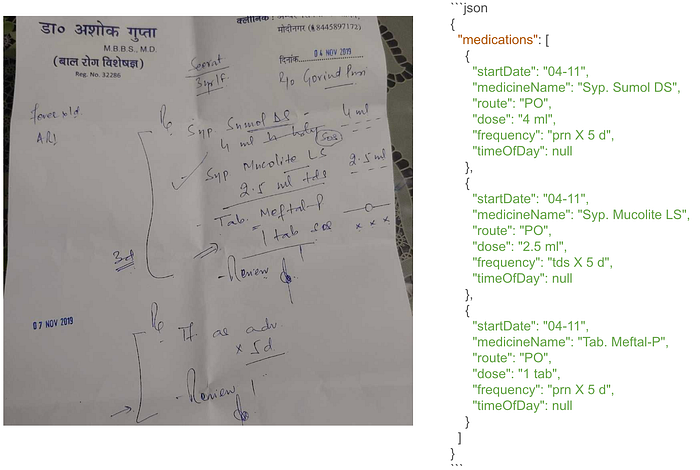 डा० अशोक गुप्ता
M.B.B.S., M.D.
(बाल रोग विशेषज्ञ)
Reg. No. 32286
क्लीनिक :
मोदीनगर (8445897172)
दिनांक 04 NOV 2019
Seerat
3yr/F
R/o Govind Puri
Fever
ARI
Rx
Syp. Sumol DS - 4 ml
4 ml
SOS
Syp Mucolite LS 2.5 ml
2.5 ml tds
- Tab. Meftal-P
1 tab sos
x x x
3d
- Review
07 NOV 2019
Rx
Tt. as adv.
x 5d
- Review
```json
{
"medications": [
{
"startDate": "04-11",
"medicineName": "Syp. Sumol DS",
"route": "PO",
"dose": "4 ml",
"frequency": "prn X 5 d",
"timeOfDay": null
},
{
"startDate": "04-11",
"medicineName": "Syp. Mucolite LS",
"route": "PO",
"dose": "2.5 ml",
"frequency": "tds X 5 d",
"timeOfDay": null
},
{
"startDate": "04-11",
"medicineName": "Tab. Meftal-P",
"route": "PO",
"dose": "1 tab",
"frequency": "prn X 5 d",
"timeOfDay": null
}
]
}
```